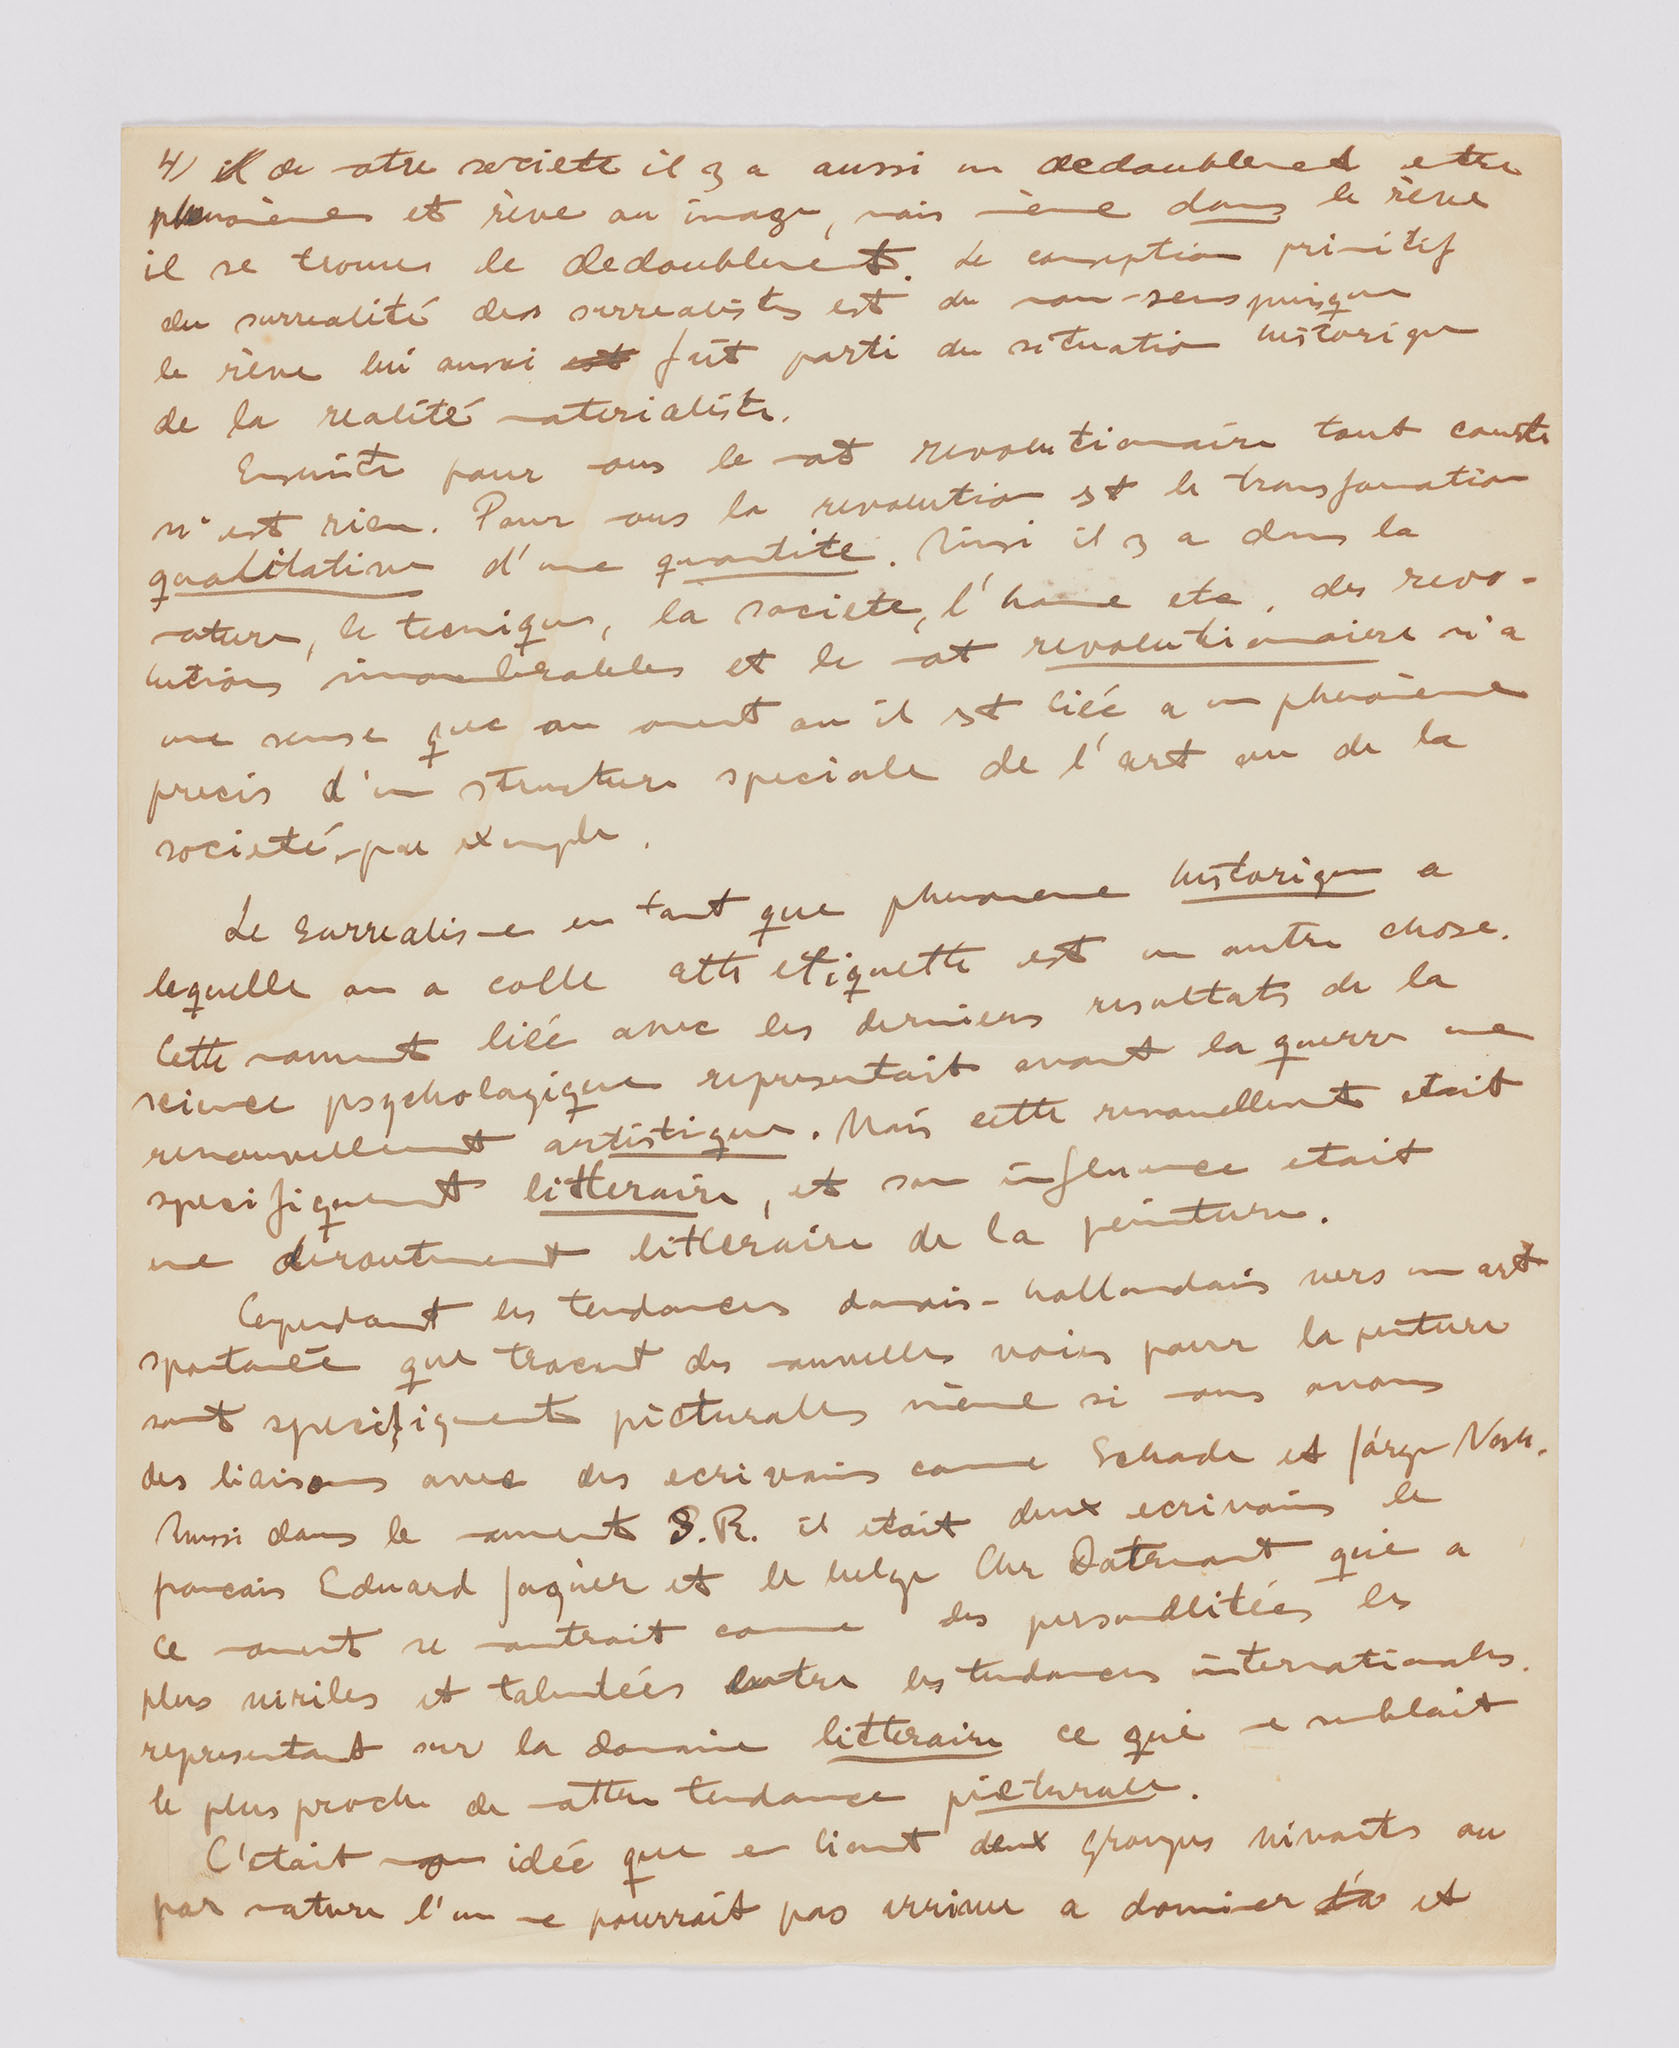 4) de notre societe il y a aussi un dedoublement entre
phenomenes et rève ou image, mais mème dans le rève
il se trouves le dedoublement. Le conseption primitif
du surrealité des surrealistes est du non-sens puisque
le rève lui aussi est fait parti du situation historique
de la realité materialiste.
Ensuite pour nous le mot revolutionnaire tout courte
n'est rien. Pour nous la revolution est le transfomation
qualitative d'une quantite. Ainsi il y a dans la
nature, le tecnique, la societe, l'homme etc. des revo-
lutions innombrables et le mot revolutionnaire n'a
une sense que au moment ou il est liée a un phenomène
precis d'un structure speciale de l'art ou de la
societé par exemple.
Le surrealisme en tant que phenomene historique a
lequelle on a colle cette etiquette est un autre chose.
Cette moment liée avec les derniers resultats de la
science psychologique representait avant la guerre une
renouvellement artistique. Mais cette renouvellement etait
specifiquement litteraire, et son influence etait
une deroutement litteraire de la peinture.
Cependant les tendances danois-hollandais vers un art
spontanée que tracent des nouvelles voies pour la peinture
sont specifiquement picturales mème si nous avons
des liaisons avec des ecrivains comme Schade et Jörgen Nash.
Aussi dans le moment S.R. il etait deux ecrivains le
francais Eduard Jaguer et le belge Chr Dotremont qui a
ce moment se montrait comme des personallitées les
plus viriles et talentées entre les tendances internationales.
representant sur la domaine litteraire ce qui me semblait
le plus proche de nottre tendance picturale.
C'etait mon idée que en liant deux groupes vivants ou
par nature l'un ne pourrait pas arriver a dominer et